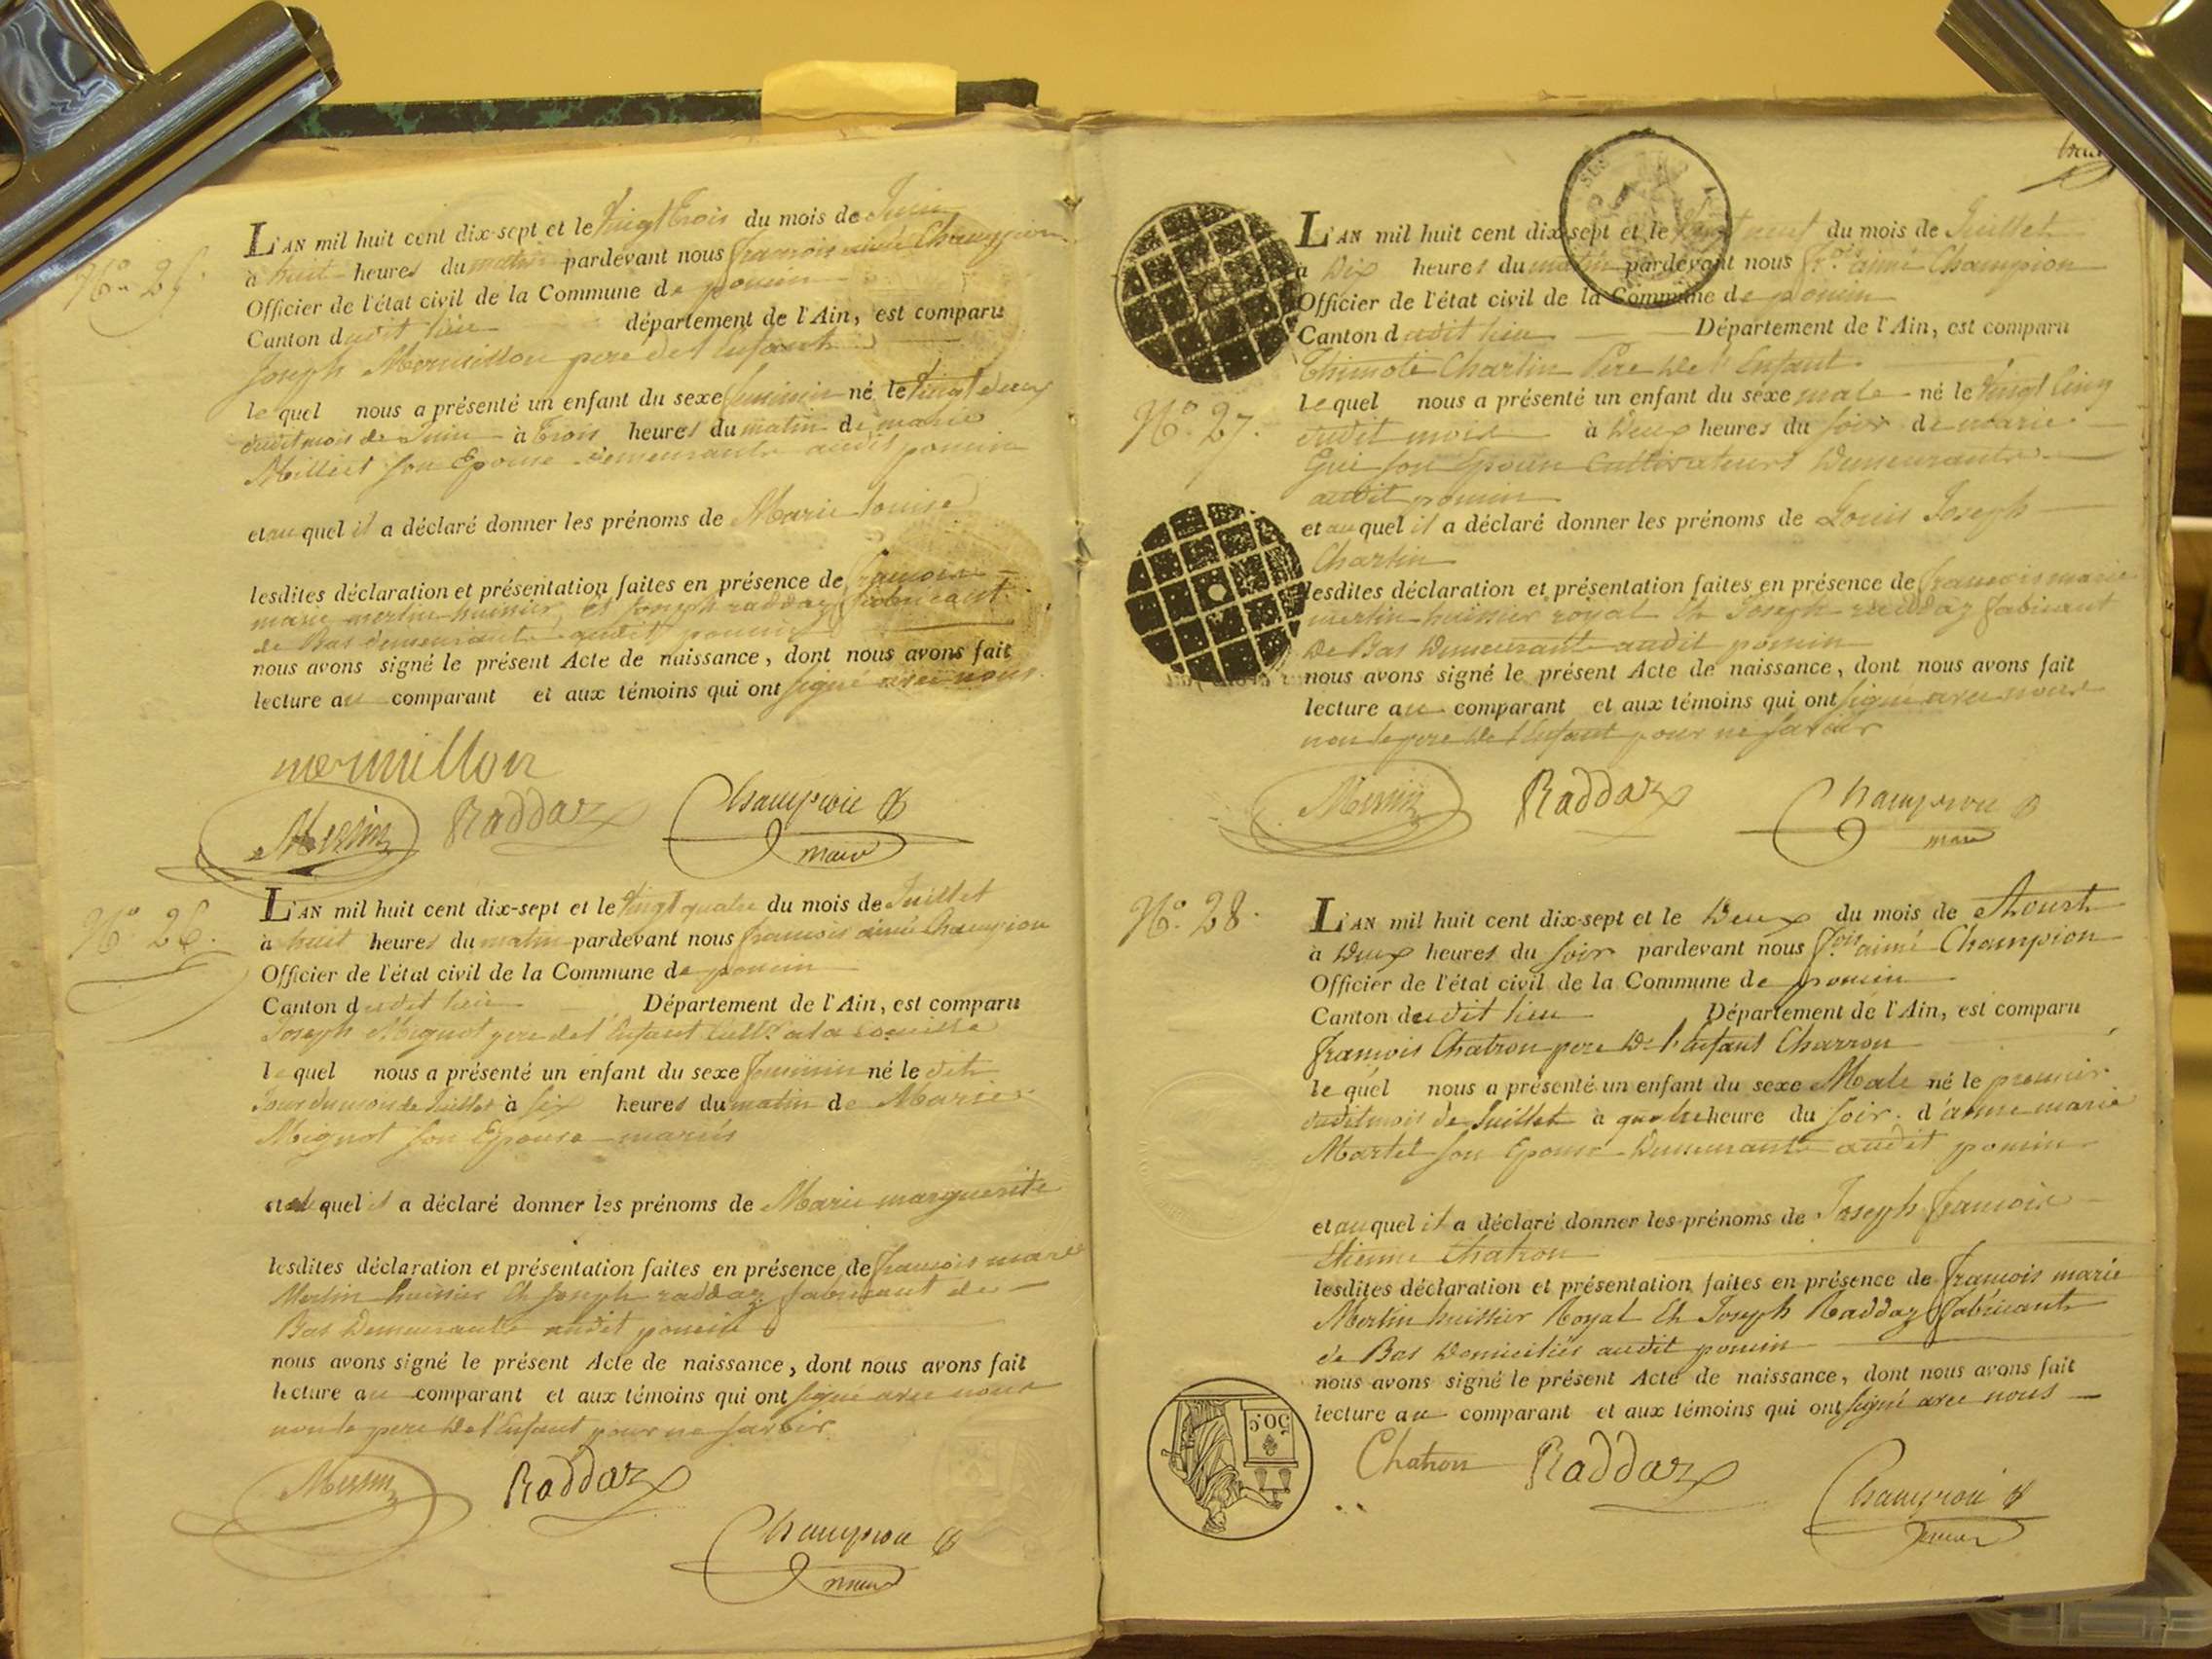 N.o 25.
L'AN mil huit cent dix-sept et le vingt trois du mois de Juin
à huit heures du matin pardevant nous françois aimé Champion
Officier de l'état civil de la Commune de poncin
Canton dudit lieu département de l'Ain, est comparu
Joseph Mermillon pere de l'Enfant
le quel nous a présenté un enfant du sexe feminin né le vingt deux
dudit mois de Juin à trois heures du matin de marie
Milliet son Epouse demeurants audit poncin
et au quel il a déclaré donner les prénoms de Marie Louise
lesdites déclaration et présentation faites en présence de françois
marie merlin huissier et Joseph raddaz fabricant
de Bas demeurants audit poncin
nous avons signé le présent Acte de naissance, dont nous avons fait
lecture au comparant et aux témoins qui ont signé avec nous.
mermillon
Merlin Raddaz Champion
maire
N.o 26.
L'AN mil huit cent dix-sept et le vingt quatre du mois de Juillet
à huit heures du matin pardevant nous françois aimé Champion
Officier de l'état civil de la Commune de poncin
Canton dudit lieu Département de l'Ain, est comparu
Joseph Mignot pere de l'Enfant cult.r a la
le quel nous a présenté un enfant du sexe feminin né le dit
Jour du mois de Juillet à six heures du matin de Marie
Mignot son Epouse mariés
quel il a déclaré donner les prénoms de Marie marguerite
lesdites déclaration et présentation faites en présence de françois marie
Merlin huissier Et Joseph raddaz fabricant de
Bas Demeurants audit poncin
nous avons signé le présent Acte de naissance, dont nous avons fait
lecture au comparant et aux témoins qui ont signé avec nous
non le pere de l'Enfant pour ne savoir
Merlin Raddaz
Champion
maire
N.o 27.
L'AN mil huit cent dix-sept et le vingt neuf du mois de Juillet
à Dix heures du matin pardevant nous fr.ois aimé Champion
Officier de l'état civil de la Commune de poncin
Canton dudit lieu Département de l'Ain, est comparu
Thimoté Charlin Pere de l'Enfant
le quel nous a présenté un enfant du sexe male né le vingt cinq
dudit mois à Deux heures du soir de marie
Gui son Epouse Cultivateurs Demeurants
audit poncin
et au quel il a déclaré donner les prénoms de Louis Joseph
Charlin
lesdites déclaration et présentation faites en présence de françois marie
merlin huissier royal Et Joseph raddaz fabricant
de Bas Demeurants audit poncin
nous avons signé le présent Acte de naissance, dont nous avons fait
lecture au comparant et aux témoins qui ont signé avec nous
non le pere de l'Enfant pour ne savoir
Merlin Raddaz Champion
maire
N.o 28.
L'AN mil huit cent dix-sept et le Deux du mois de Aoust
à Deux heures du soir pardevant nous f.ois aimé Champion
Officier de l'état civil de la Commune de poncin
Canton dudit lieu Département de l'Ain, est comparu
françois Chatron pere De l'Enfant Charron
le quel nous a présenté un enfant du sexe Male né le premier
dudit mois de Juillet à quatre heure du soir d'anne marie
Martel son Epouse Demeurants audit poncin
et au quel il a déclaré donner les prénoms de Joseph françois
Etienne Chatron
lesdites déclaration et présentation faites en présence de françois marie
Merlin huissier Royal Et Joseph Raddaz fabricant
de Bas Domiciliés audit poncin
nous avons signé le présent Acte de naissance, dont nous avons fait
lecture au comparant et aux témoins qui ont signé avec nous
50 c.
Chatron Raddaz Champion
maire